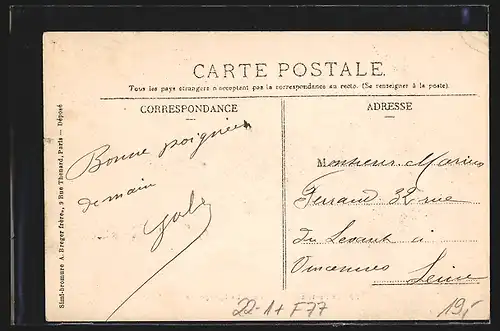 CARTE POSTALE.
Tous les pays étrangers n'acceptent pas la correspondance au recto. (Se renseigner à la poste).
CORRESPONDANCE
ADRESSE
Bonne poignée
de main
Monsieur Marius
Ferrand 32 rue
du Levant à
Vincennes
Seine
Simi-bromure A. Breger frères, 9 Rue Thénard, Paris — Déposé
22-1+ F77
19,-